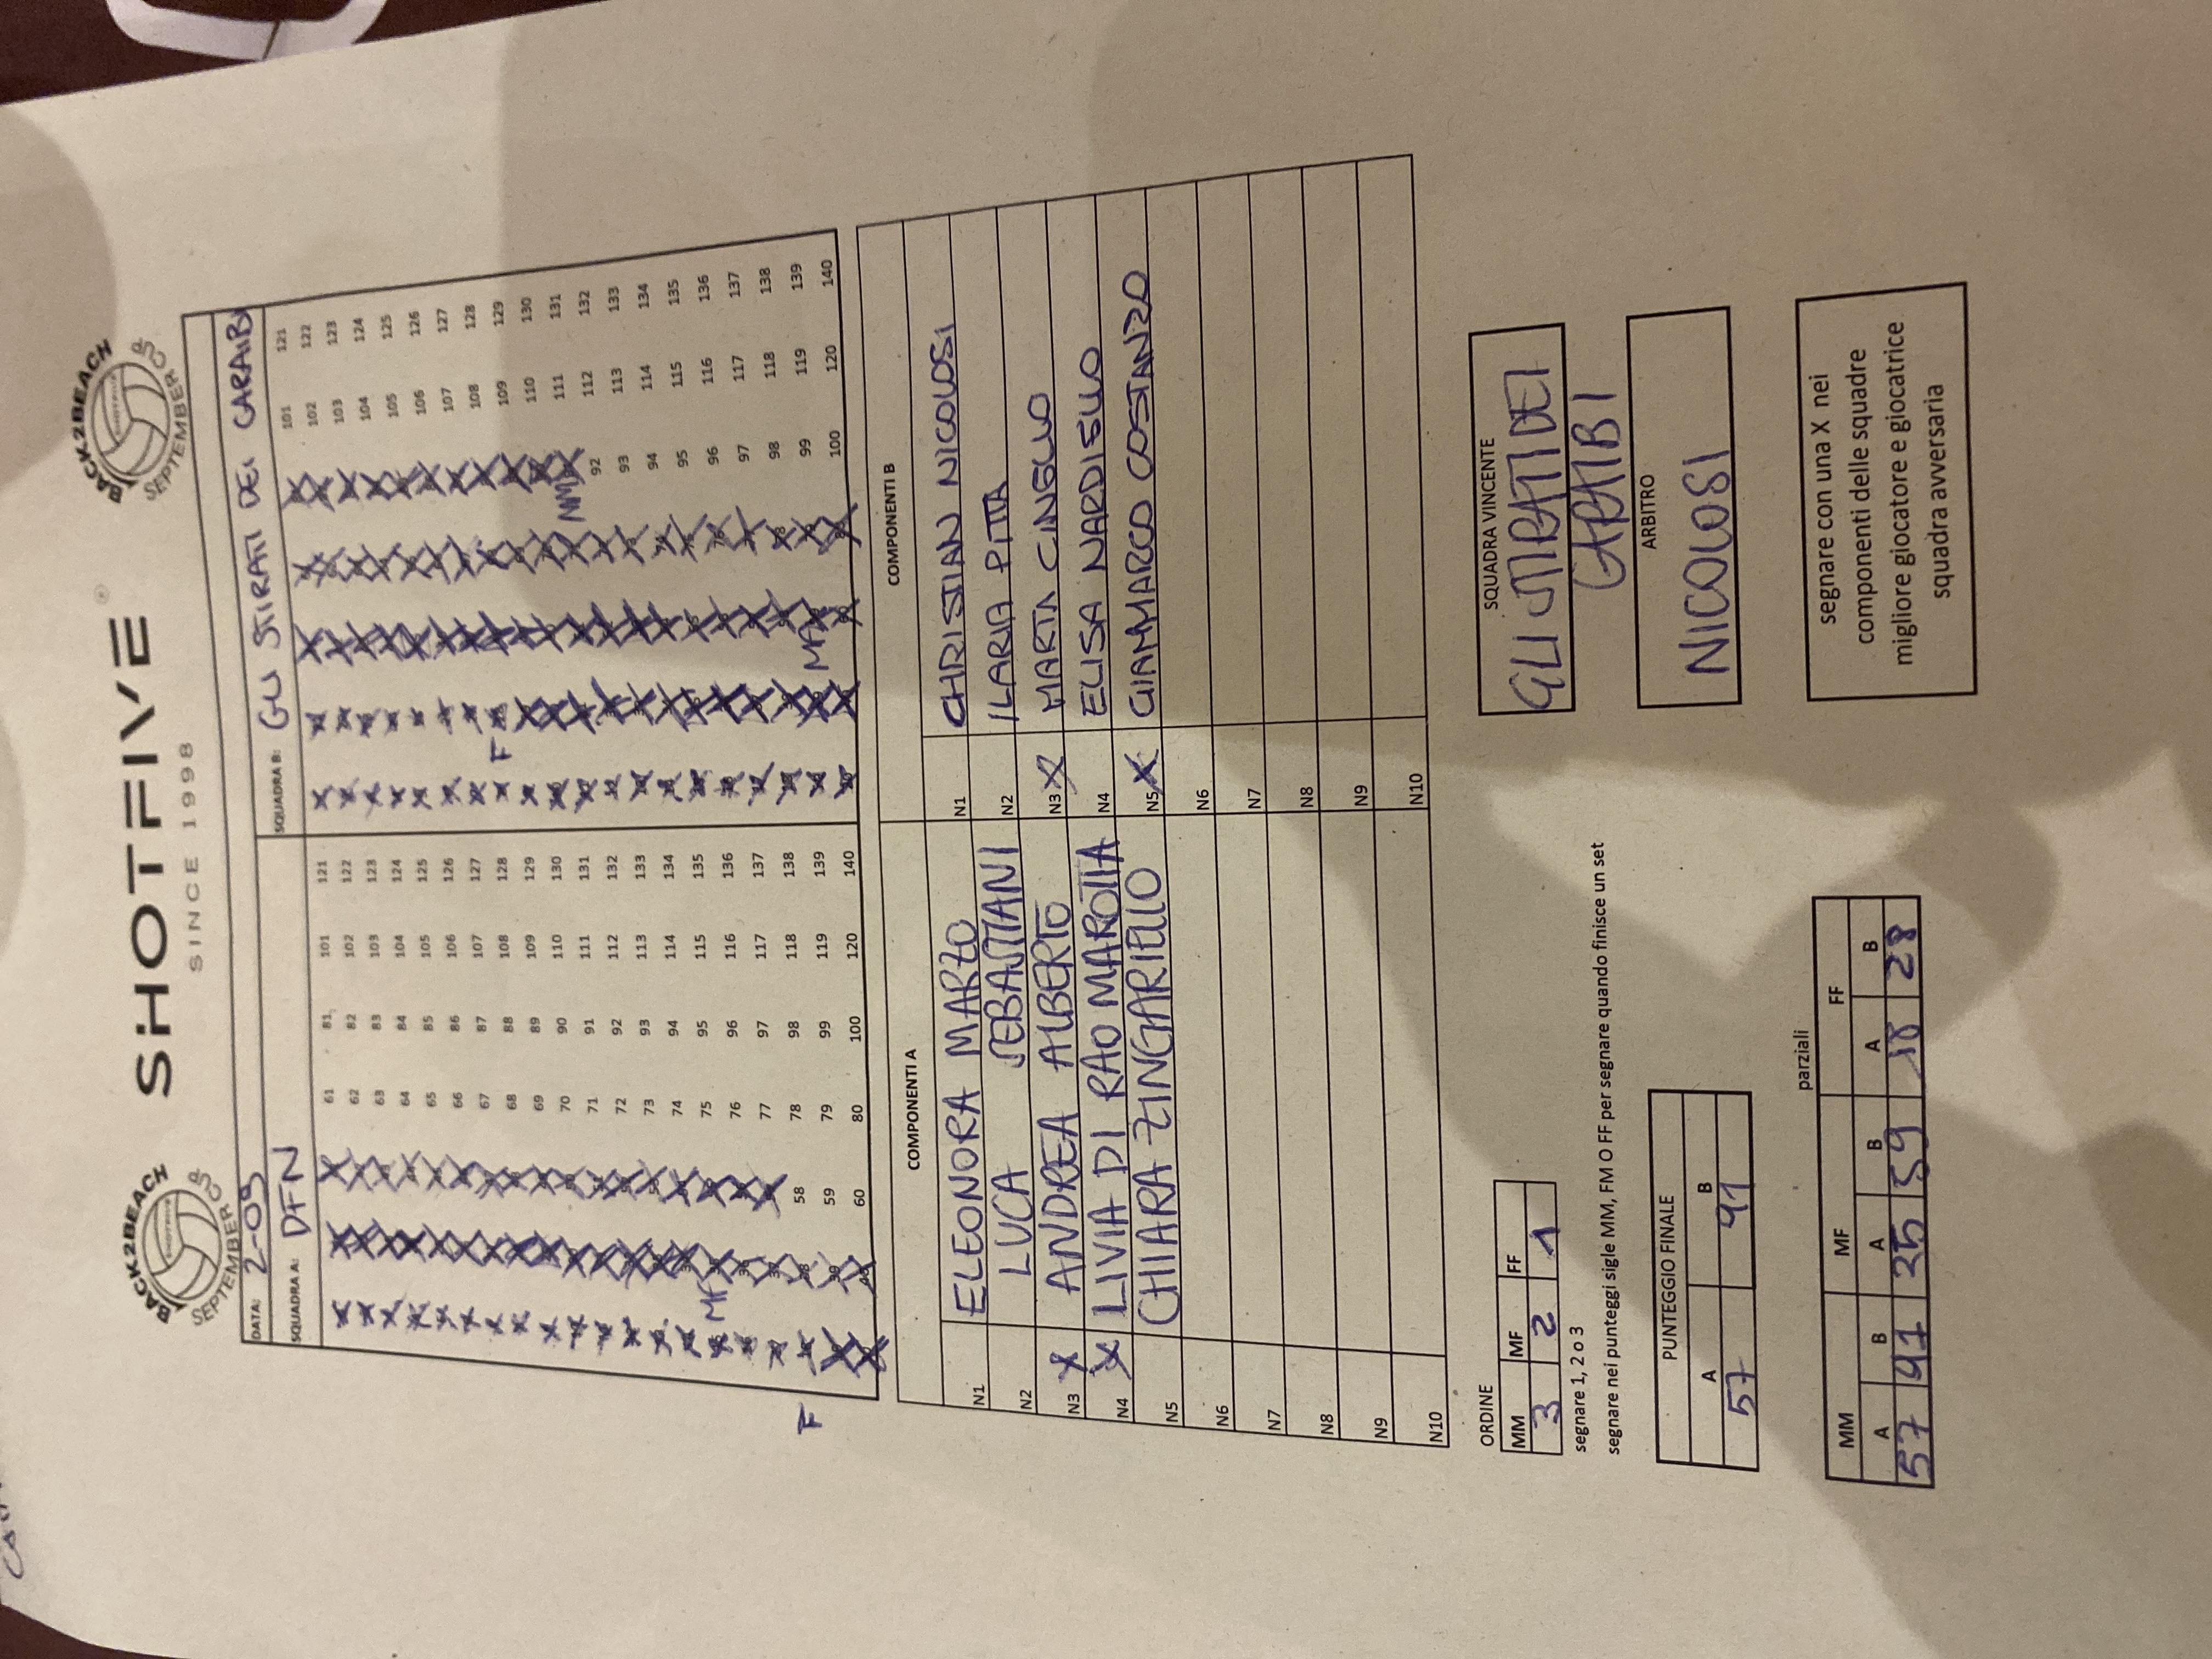 BACK2BEACH
SEPTEMBER
SHOTFIVE ®
SINCE 1998
BACK2BEACH
SEPTEMBER
DATA: 2-09
SQUADRA A: DFN
SQUADRA B: GLI STIRATI DEI CARAIBI
61 81 101 121
62 82 102 122
63 83 103 123
64 84 104 124
65 85 105 125
66 86 106 126
67 87 107 127
68 88 108 128
69 89 109 129
70 90 110 130
71 91 111 131
72 92 112 132
73 93 113 133
74 94 114 134
75 95 115 135
MF
76 96 116 136
77 97 117 137
F
58 78 98 118 138
59 79 99 119 139
60 80 100 120 140
101 121
102 122
103 123
104 124
105 125
106 126
107 127
F
108 128
109 129
110 130
MM
111 131
92 112 132
93 113 133
94 114 134
95 115 135
96 116 136
97 117 137
98 118 138
MF
99 119 139
100 120 140
COMPONENTI A
N1 ELEONORA MARZO
N2 LUCA SEBASTIANI
N3 X ANDREA ALBERTO
N4 X LIVIA DI RAO MAROTTA
N5 CHIARA ZINGARIELLO
N6
N7
N8
N9
N10
COMPONENTI B
N1 CHRISTIAN NICOLOSI
N2 ILARIA PITTA
N3 X MARTA CINGLIO
N4 ELISA NARDIELLO
N5 X GIAMMARCO COSTANZO
N6
N7
N8
N9
N10
ORDINE
MM MF FF
3 2 1
segnare 1, 2 o 3
segnare nei punteggi sigle MM, FM O FF per segnare quando finisce un set
PUNTEGGIO FINALE
A B
57 91
parziali
MM MF FF
A B A B A B
57 91 35 59 18 28
SQUADRA VINCENTE
GLI STIRATI DEI
CARAIBI
ARBITRO
NICOLOSI
segnare con una X nei
componenti delle squadre
migliore giocatore e giocatrice
squadra avversaria